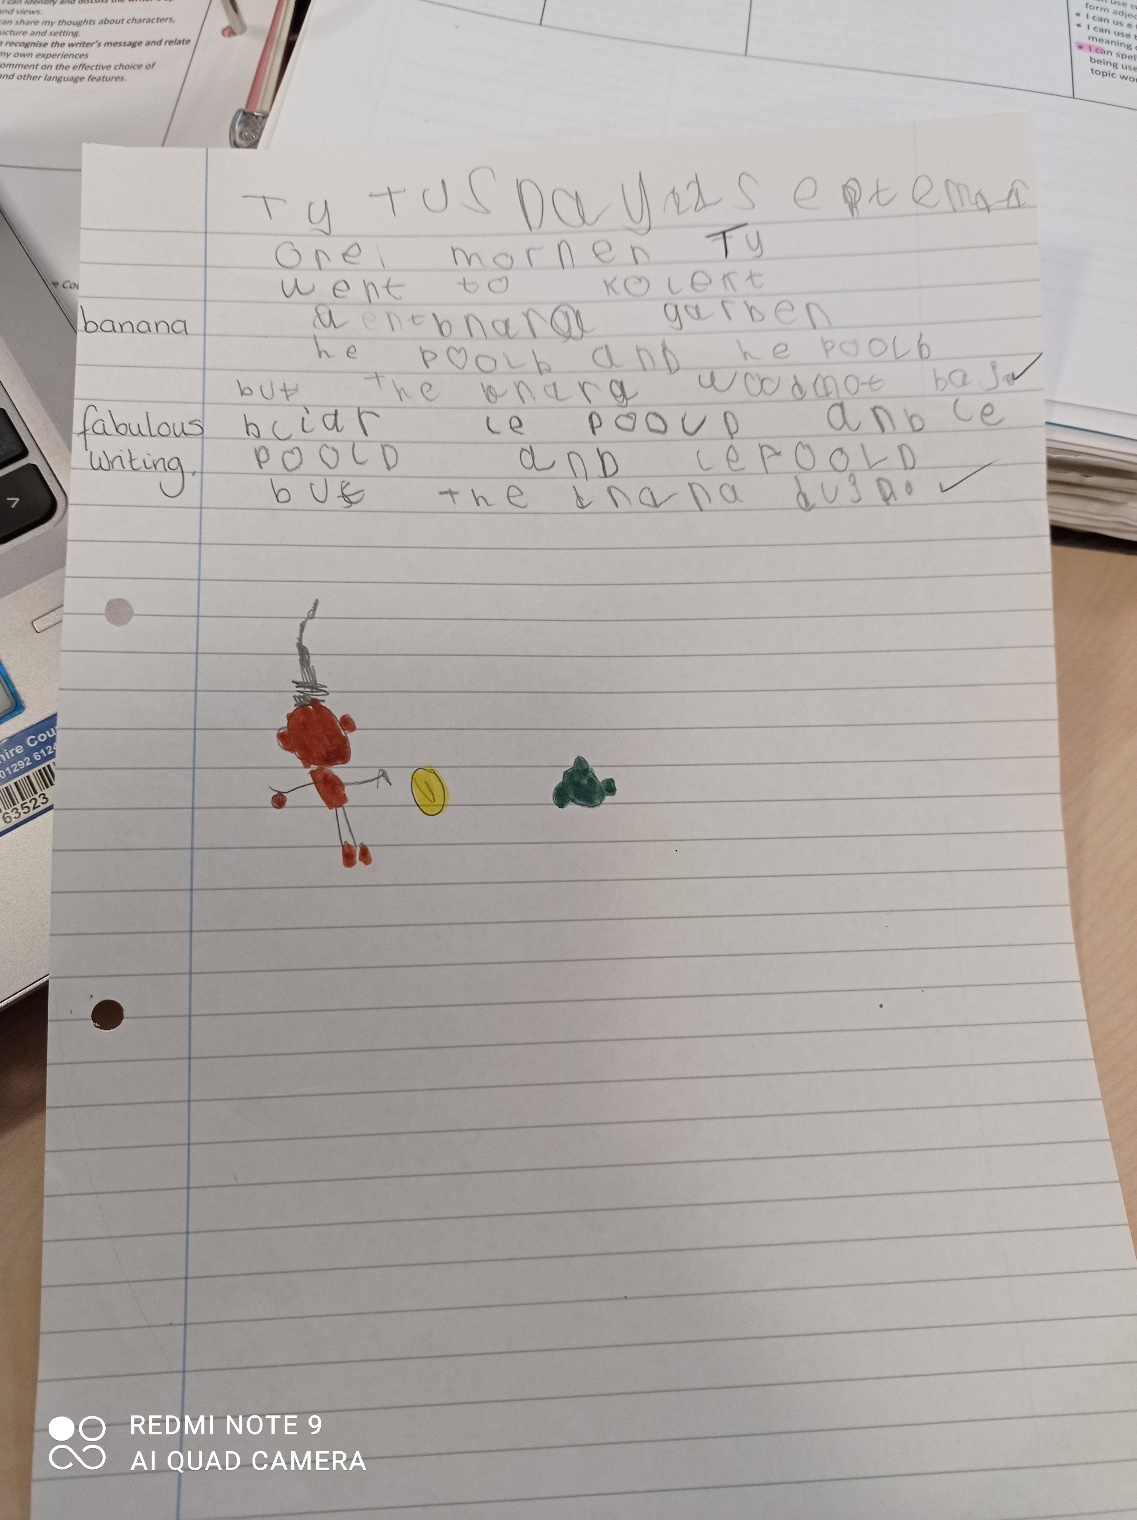 I can identify and discuss the writer's
and views.
can share my thoughts about characters,
structure and setting.
recognise the writer's message and relate
my own experiences
comment on the effective choice of
and other language features.
form adje
• I can us
• I can use
meaning
• I can spel
being use
topic wo
Ty TUSDay 22 Septemar
one morning Ty
went to kolekt
banana
a entbnana garben
he poolb and he poolb
but the bnana wood not
fabulous
bciar ce poolD anb ce
writing.
poolD anD cepoolD
but the bnana
hire Cou
01292 612
63523
REDMI NOTE 9
AI QUAD CAMERA